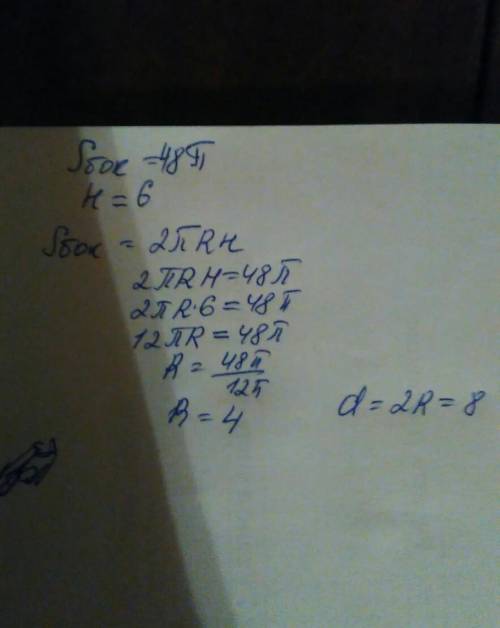 Sбок = 48π
H = 6
Sбок = 2πRH
2πRH = 48π
2πR·6 = 48π
12πR = 48π
R = 48π/12π
R = 4
d = 2R = 8